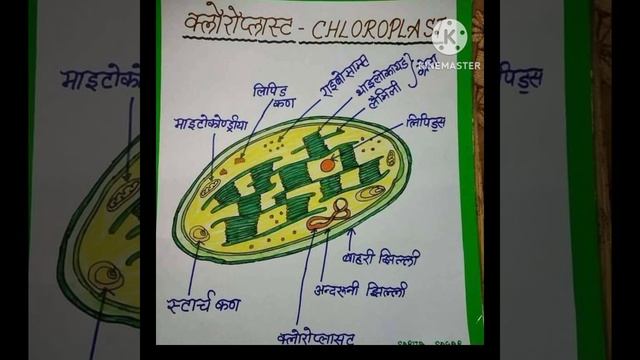 क्लोरोप्लास्ट - CHLOROPLAST
KINEMASTER
लिपिड
कण
राइबोसोम्स
थाइलोकायडी
लैमिली
माइटोकोण्ड्रीया
लिपिड्स
बाहरी झिल्ली
अन्दरूनी झिल्ली
स्टार्च कण
क्लोरोप्लास्ट
SARITA SAGAR
माइटोक
लिपिड्स